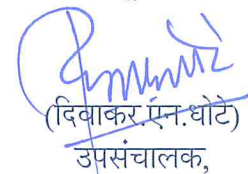 (दिवाकर.एन.धोटे)
उपसंचालक,